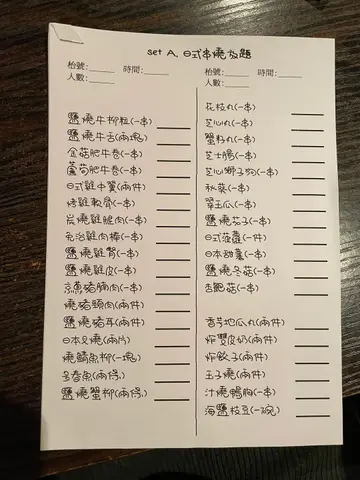 set A. 日式串燒放題
枱號:_____ 時間:_____
人數:_____
鹽燒牛柳粒(一串)
鹽燒牛舌(兩塊)
金菇肥牛卷(一串)
蘆筍肥牛卷(一串)
日式雞中翼(兩件)
烤雞軟骨(一串)
炭燒雞腿肉(一串)
免治雞肉棒(一串)
鹽燒雞腎(一串)
鹽燒雞皮(一串)
京蔥豬腩肉(一串)
燒豬頸肉(兩件)
鹽燒豬耳(兩件)
日本叉燒(兩片)
燒鯖魚柳(一塊)
多春魚(兩條)
鹽燒蟹柳(兩條)
枱號:_____ 時間:_____
人數:_____
花枝丸(一串)
芝心丸(一串)
蟹籽丸(一串)
芝士腸(一串)
芝心獅子狗(一串)
秋葵(一串)
翠玉瓜(一串)
鹽燒茄子(一串)
日式菠蘿(一件)
日本甜薯(一串)
鹽燒冬菇(一串)
杏鮑菇(一串)
香芋地瓜丸(兩件)
炸雙皮奶(兩件)
炸餃子(兩件)
玉子燒(兩件)
汁燒鴨胸(一串)
海鹽枝豆(一碗)